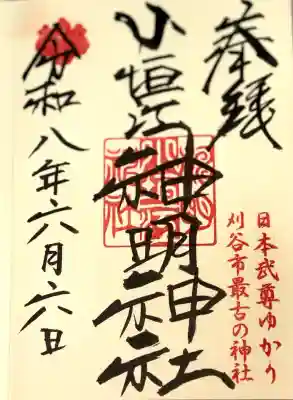 奉拝
日本武尊ゆかり
刈谷市最古の神社
小垣江神明神社
令和八年六月六日